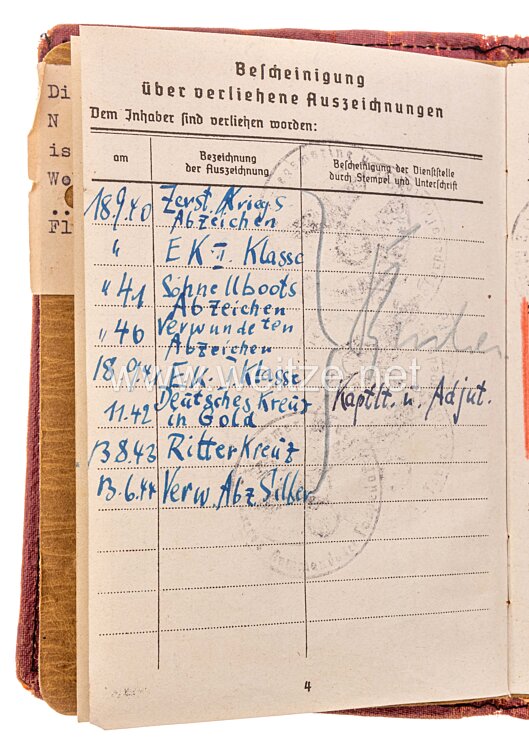 Di
N
is
We
Fl
Bescheinigung
über verliehene Auszeichnungen
Dem Inhaber sind verliehen worden:
am
Bezeichnung
der Auszeichnung
Bescheinigung der Dienststelle
durch Stempel und Unterschrift
18.9.40 Zerst. Kriegs
Abzeichen
" EK II Klasse
" 41 Schnellboots
Abzeichen
" 40 Verwundeten
Abzeichen
18.9.4 EK I Klasse
www.weitze.net
11.42 Deutsches Kreuz
in Gold
Kaptlt. u. Adjut.
13.8.43 Ritter Kreuz
13.6.44 Verw. Abz Silber
4